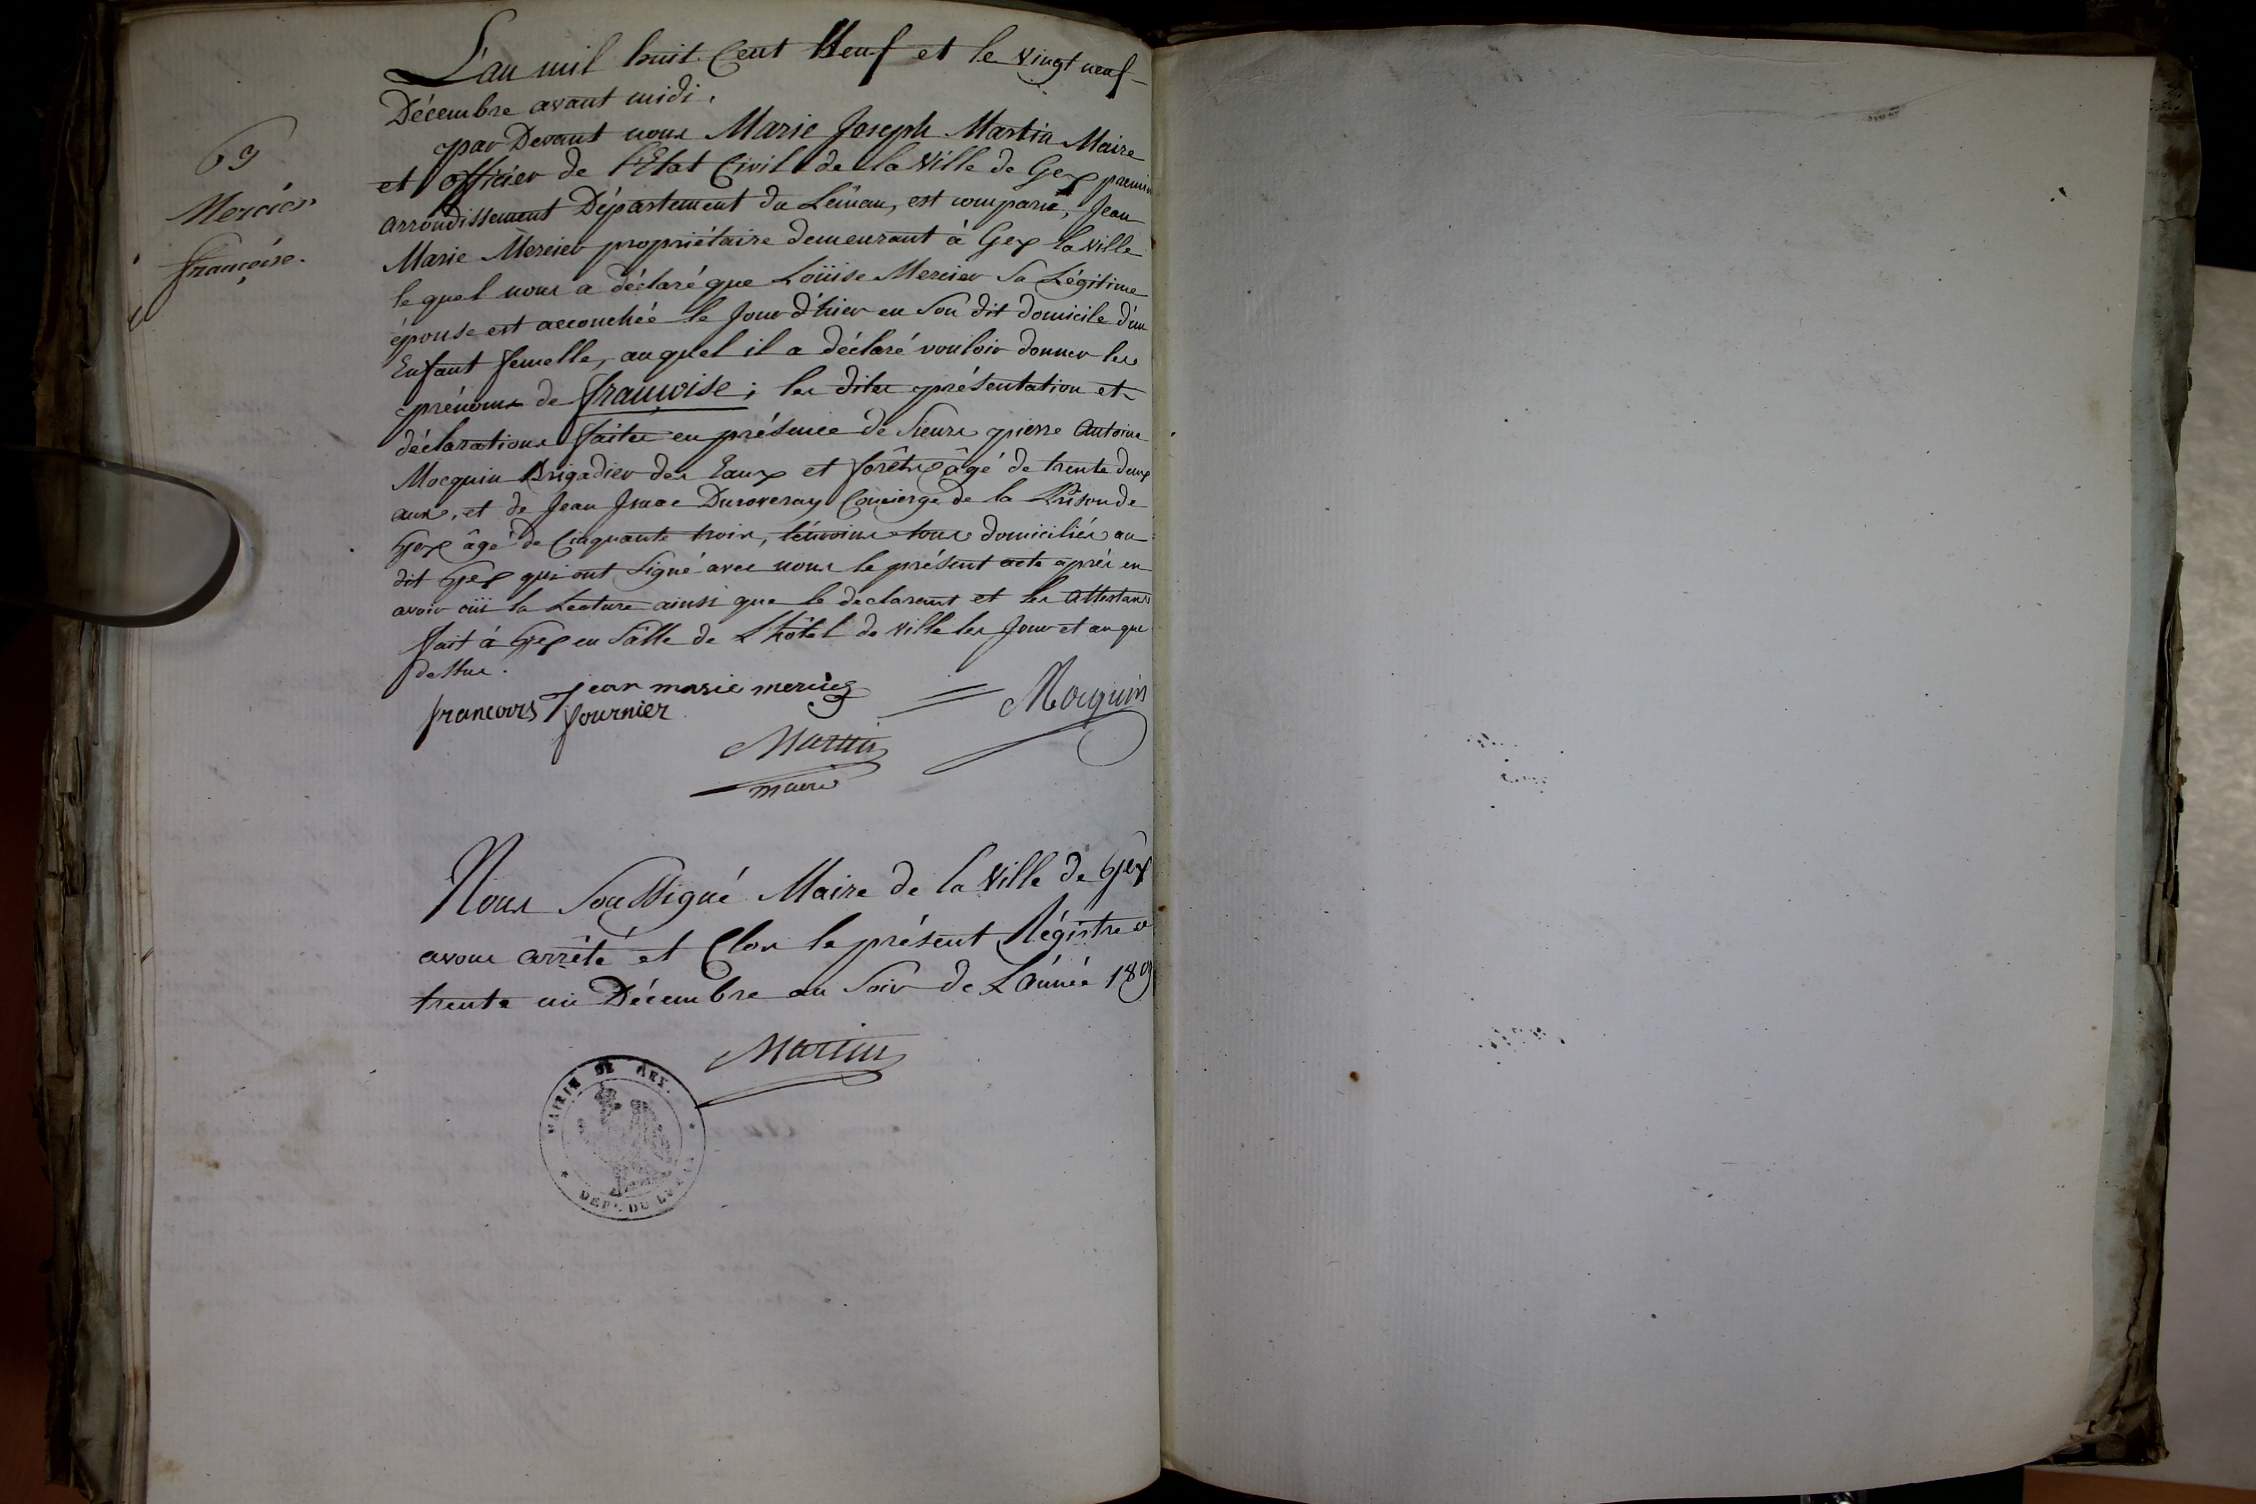 L'an mil huit Cent Neuf et le vingt neuf
Décembre avant midi.
par Devant nous Marie Joseph Martin Maire
et officier de l'Etat Civil de la Ville de Gex premier
arrondissement Département du Léman, est comparu, Jean
Marie Mercier propriétaire demeurant à Gex la ville
lequel nous a déclaré que Loüise Mercier Sa Légitime
épouse est accouchée le Jour d'hier en Son dit domicile d'un
Enfant femelle, auquel il a déclaré vouloir donner les
prénoms de françoise; les dites présentation et
déclarations faites en présence de Sieurs pierre Antoine
Mocquin Brigadier des Eaux et forêts âgé de trente deux
ans, et de Jean Isaac Duroveray Concierge de la Prison de
Gex âgé de Cinquante trois, témoins tous domiciliés au
dit Gex qui ont Signé avec nous le présent acte après en
avoir oüi la Lecture ainsi que le declarant et les Attestans
fait à Gex en Salle de L'hôtel de ville les Jour et an que
dessus.
69
Mercier
françoise.
Jean marie mercier
francois fournier
Mocquin
Martin
maire
Nous Soussigné Maire de la Ville de Gex
avons arrêté et Clos le présent Régistre
trente un Décembre au Soir de L'année 1809
Martin
MAIRIE DE GEX.
DEPT. DU LEMAN